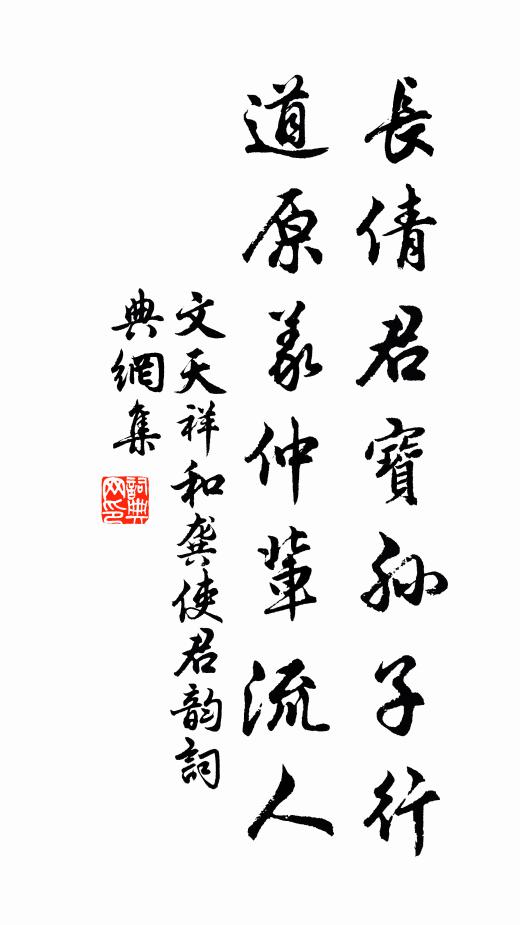 長倩君寶孫子行
道原義仲輩流人
文天祥和龔使君韵詞
典網集
詞典网印